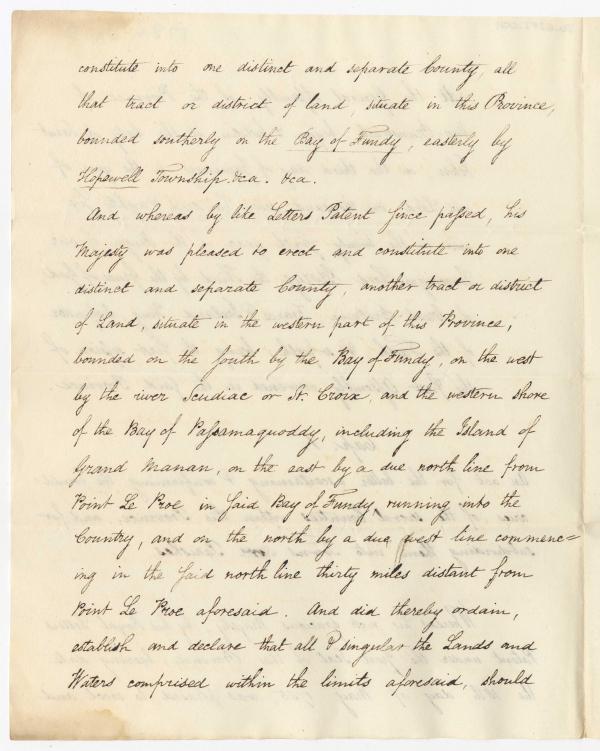 constitute into one distinct and separate County, all
that tract or district of land, situate in this Province,
bounded southerly on the Bay of Fundy, easterly by
Hopewell Township &ca. &ca.
And whereas by like Letters Patent since passed, his
Majesty was pleased to erect and constitute into one
distinct and separate County, another tract or district
of Land, situate in the western part of this Province,
bounded on the South by the Bay of Fundy, on the west
by the river Scudiac or St. Croix, and the western shore
of the Bay of Passamaquoddy, including the Island of
Grand Manan, on the east by a due north line from
Point Le Proe in said Bay of Fundy running into the
Country, and on the north by a due west line commenc=
ing in the said north line thirty miles distant from
Point Le Proe aforesaid. And did thereby ordain,
establish and declare that all & singular the Lands and
Waters comprised within the limits aforesaid, should